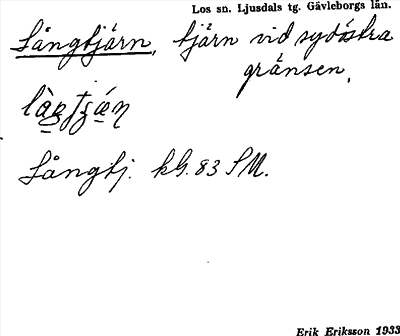 Los sn. Ljusdals tg. Gävleborgs län.
Långtjärn, tjärn vid sydöstra
gränsen.
Långtj. kG. 83 SM.
Erik Eriksson 1933